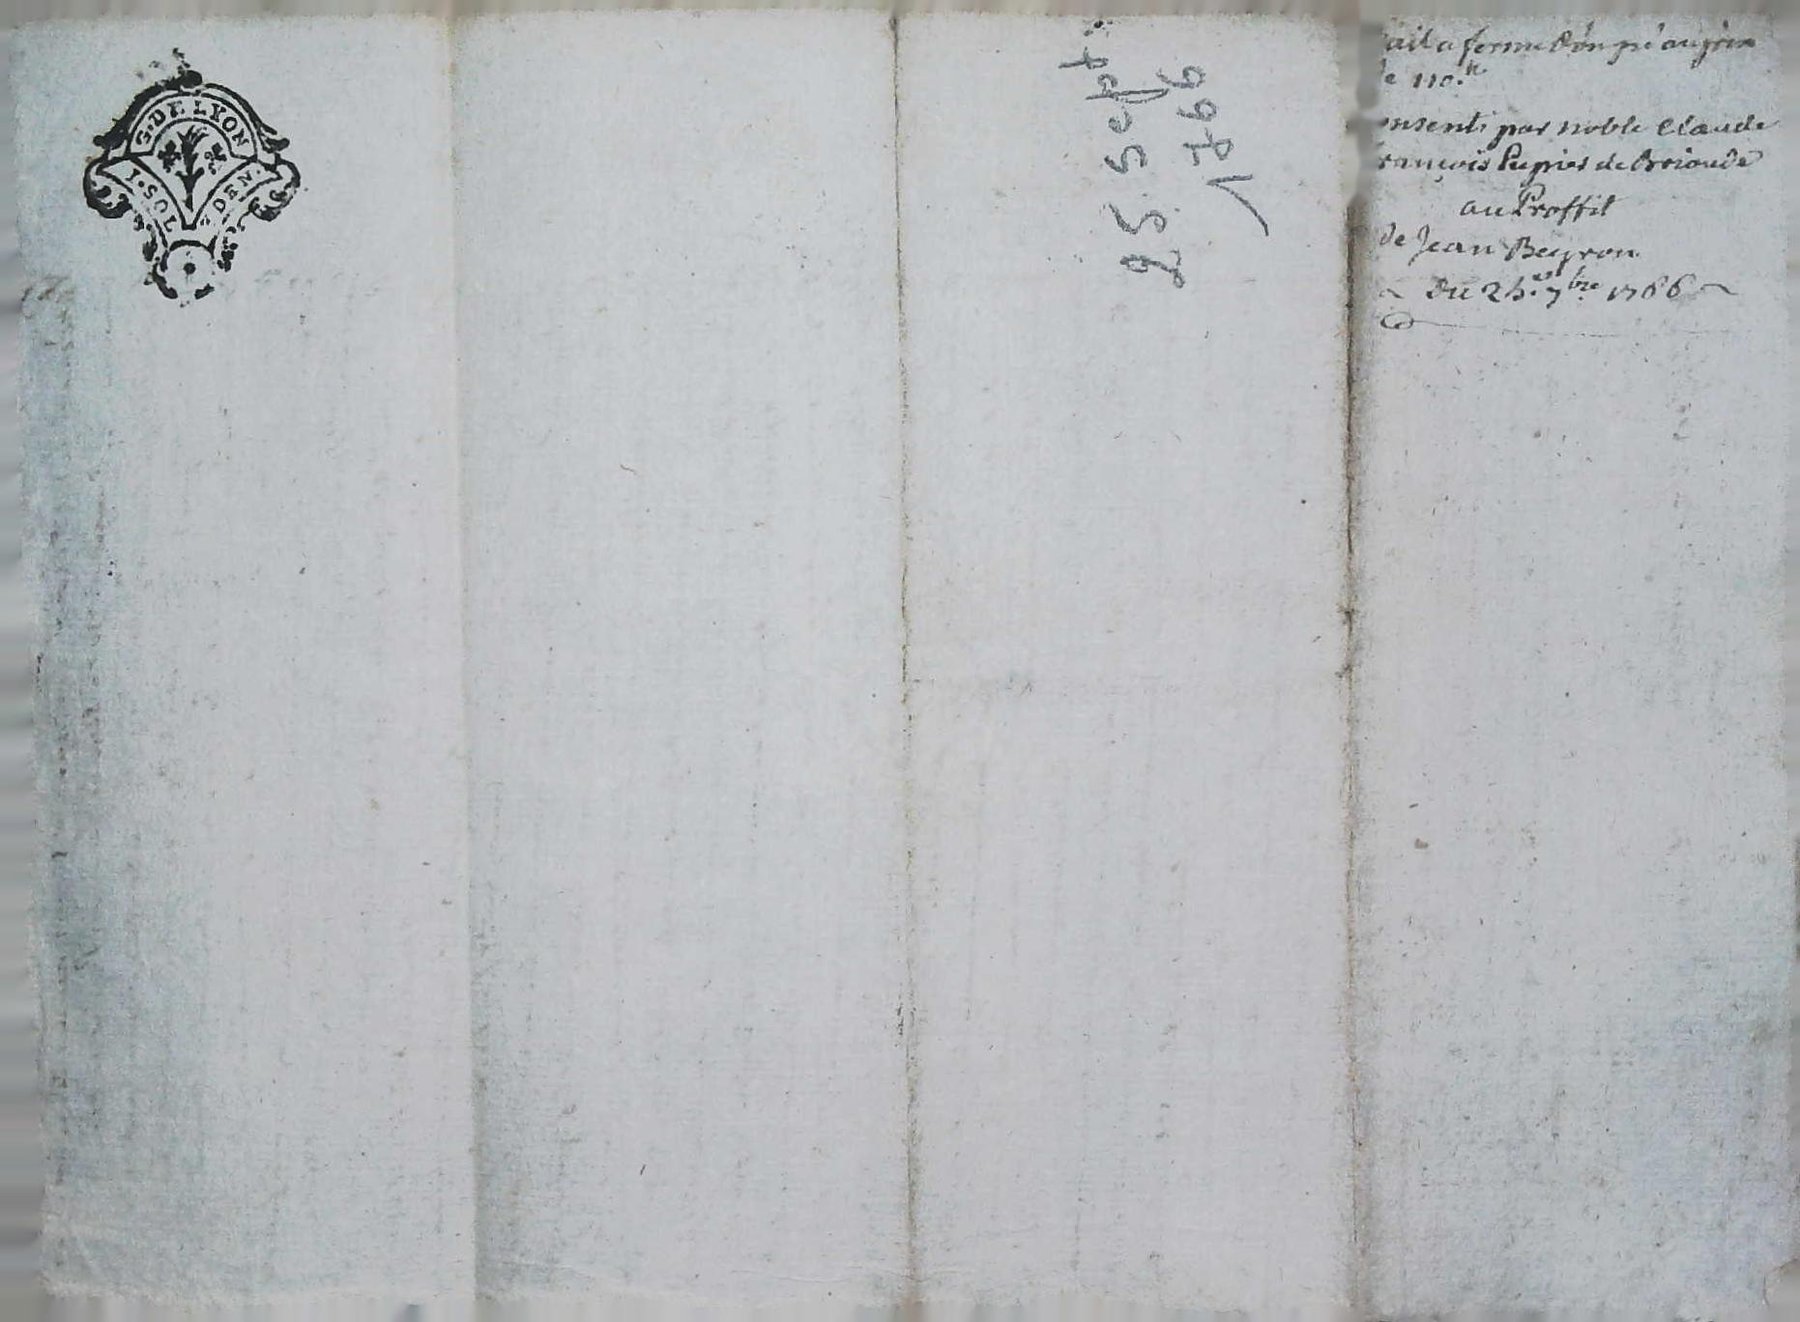 G. DE LYON
1. SOL 8. DEN.
25 Sept
1766
ail a ferme d'un pré au prix
de 110.tt
onsenti par noble Claude
rançois Pupier de Brioude
au Proffit
de Jean Beyron
Du 25.e 7bre 1766